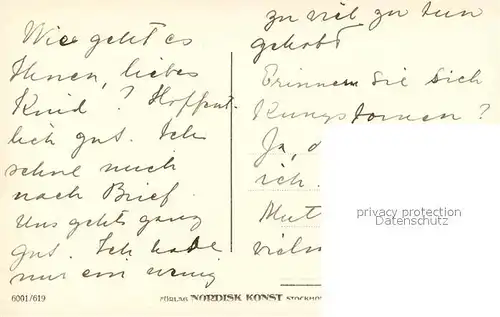 Wie geht es
Ihnen, liebes
Kind? Hoffent-
lich gut. Ich
sehne mich
nach Brief.
Uns gehts ganz
gut. Ich habe
nur ein wenig
zu viel zu tun
gehabt
Erinnern Sie sich
Kungstornen?
Ja, d
ich.
Mut
vielm
privacy protection
Datenschutz
6001/619
FÖRLAG NORDISK KONST STOCKHO